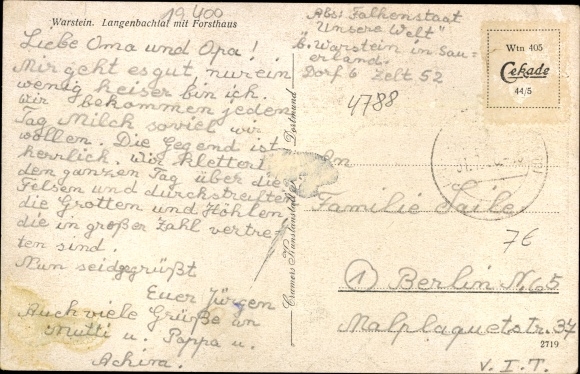 19400
Warstein. Langenbachtal mit Forsthaus
Liebe Oma und Opa!
Mir geht es gut, nur ein
wenig heiser bin ich.
Wir bekommen jeden
Tag Milch soviel wir
wollen. Die Gegend ist
herrlich. Wir klettert
den ganzen Tag über die
Felsen und durchstreiften
die Grotten und Höhlen
die in großer Zahl vertref
ten sind.
Nun seid gegrüßt
Euer Jürgen
Auch viele Grüße an
Mutti u. Pappa u.
Achim.
Cramers Kunstanstalt Dortmund
Abs: Falkenstaat
"Unsere Welt"
b. Warstein in Sau-
erland.
Dorf 6 Zelt 52
4788
Wtn 405
Cekade
44/5
An
Familie Saile
76
1 Berlin N. 65
Malplaquetstr. 37
2719
v. I. T.